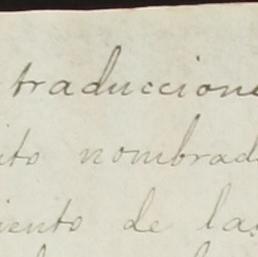 traduccione
ito nombrad
iento de las